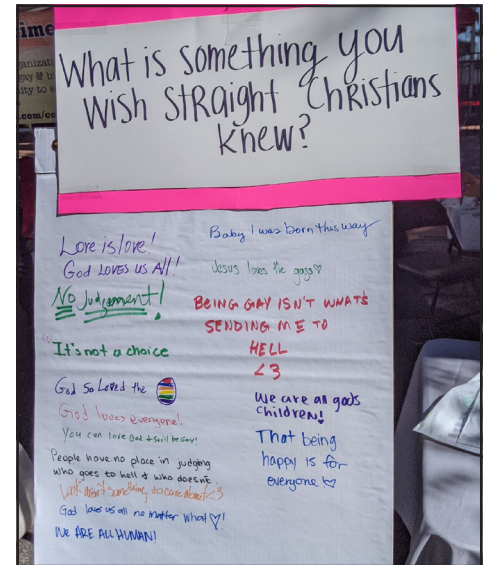 ime
ganizati
gay & b
lity to e
.com/co
What is something you
wish straight Christians
knew?
Love is love!
God loves us all!
No Judgement!
It's not a choice
God so loved the
God loves everyone!
You can love God & still be gay!
People have no place in judging
who goes to hell & who doesn't
Look aren't something to care about <3
God loves us all no matter what ♡!
WE ARE ALL HUMAN!
Baby I was born this way
Jesus loves the gays ♡
BEING GAY ISN'T WHAT'S
SENDING ME TO
HELL
<3
We are all gods
children!
That being
happy is for
everyone ♡